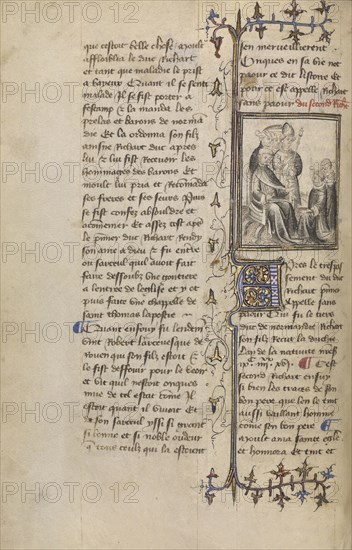 que cestoit belle chose / moult
affoiblia le duc Richart
et tant que maladie le prist
a bayeux Quant il se senti
malade / Il se fist porter a
fescamp / & la manda les
prelas et barons de norma
die Et la ordonna son filz
ainsne Richart duc apres
luy & luy fist recevoir les
hommages des barons Et
moult luy pria et recomada
ses freres et ses seurs Puis
se fist confez absouldre et
acomenier Et assez tost apres
le premier duc Richart rendy
son ame a dieu Et fu enterre
ou sarcueil quil avoit fait
faire dessoubz une goutiere
a lentree de leglise et y ot
puis faite une chappelle de
saint thomas lapostre
Quant ensouy fu lendem
vint Robert larcevesque de
Rouen qui son filz estoit &
le fist deffouir pour le veoir
et dit quil nestoit onques
mue de tel estat come Il
estoit quant il vivoit Et
de son sarcueil yssi si grant
si bonne et si noble oudeur
que tous ceulx qui la estoient
sen merveillierent
Onques en sa vie not
paour ce dit listoire Et
pour ce est appelle Richart
sans paour du second Rich
Apres le trespas
sement du duc
Richart primo
Appelle sans
paour Qui fu le tiers
duc de normandie Richart
son filz Recut la duchie
Lan de la nativite nres
ixc iiiixx xvi Cest
second Richart ensuy
si bien les traces de son
bon pere que len le tint
aussi vaillant homme
come son bon pere
Moult ama sainte eglise
et honnora Et tint et